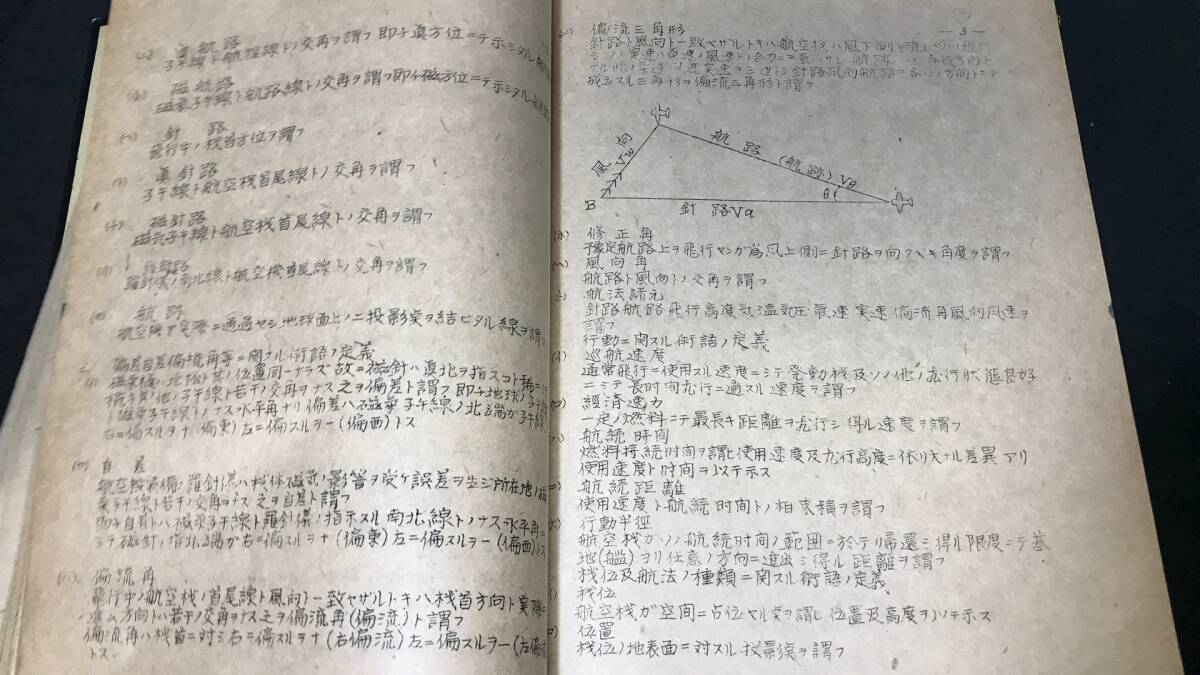 眞航路
子午線ト航程線トノ交角ヲ謂フ即チ眞方位ニテ示シタル
磁航路
磁氣子午線ト航路線トノ交角ヲ謂フ即チ磁方位ニテ示シタル
針路
飛行中ノ桟首方位ヲ謂フ
眞針路
子午線ト航空桟首尾線トノ交角ヲ謂フ
磁針路
磁氣子午線ト航空桟首尾線トノ交角ヲ謂フ
羅針儀ノ南北線ト航空機首尾線トノ交角ヲ謂フ
航路
航空機ガ実際ニ通過セシ地球面上ノ投影矣ヲ結ビタル線ヲ謂フ
偏差自差偏流角等ニ関スル術語ノ定義
ナス水平角ナリ偏差ハ磁氣子午線ノ北端ガ子午線
右ニ偏スルヲ+(偏東)左ニ偏スルヲ-(偏西)トス
(ロ) 自差
航空桟装備ノ羅針儀ハ桟体磁気ノ影響ヲ受ケ誤差ヲ生ジ所在地ノ磁
氣子午線ト若干ノ交角ヲナス之ヲ自差ト謂フ
即チ自差トハ磁氣子午線ト羅針儀ノ指示スル南北線トノナス水平角ニ
シテ磁針ノ指北端ガ右ニ偏スルヲ+(偏東)左ニ偏スルヲ-(偏西)トス
(ハ) 偏流角
飛行中ノ航空桟ノ首尾線ト風向ト一致セザルトキハ桟首方向ト実際ニ
進ム方向トハ若干ノ交角ヲナス之ヲ偏流角(偏流)ト謂フ
偏流角ハ桟首ニ対シ右ニ偏スルヲ+(右偏流)左ニ偏スルヲ-(左偏流)
トス
— 3 —
(ニ) 偏流三角形
針路ト風向ト一致セザルトキハ航空桟ハ風下側ニ流レツツ飛行
成立スル三角形ヲ偏流三角形ト謂フ
風向 Vw
航路(航跡)Vg
θ
B
針路Va
(ホ) 修正角
豫定航路上ヲ飛行センガ為風上側ニ針路ヲ向クベキ角度ヲ謂フ
(ヘ) 風向角
航路ト風向トノ交角ヲ謂フ
(ト) 航法諸元
針路航路飛行高度気温気圧氣速実速偏流角風向風速ヲ
謂フ
行動ニ関スル術語ノ定義
(イ) 巡航速度
通常飛行ニ使用スル速度ニシテ発動桟及ソノ他ノ飛行状態良好
ニシテ長時间飛行ニ適スル速度ヲ謂フ
(ロ) 経済速力
一定ノ燃料ニテ最長キ距離ヲ飛行シ得ル速度ヲ謂フ
(ハ) 航続時间
燃料持続時间ヲ謂ヒ使用速度及飛行高度ニ依リ大ナル差異アリ
使用速度ト時间ヲ以テ示ス
(ニ) 航続距離
使用速度ト航続时间トノ相乗積ヲ謂フ
(ホ) 行動半径
航空桟ガソノ航続时间ノ範囲ニ於テ帰還シ得ル限度ニテ基
地(艦)ヨリ任意ノ方向ニ進出シ得ル距離ヲ謂フ
桟位及航法ノ種類ニ関スル術語ノ定義
(イ) 桟位
航空桟ガ空间ニ占位セル矣ヲ謂ヒ位置及高度ヲ以テ示ス
(ロ) 位置
桟位ノ地表面ニ対スル投影矣ヲ謂フ